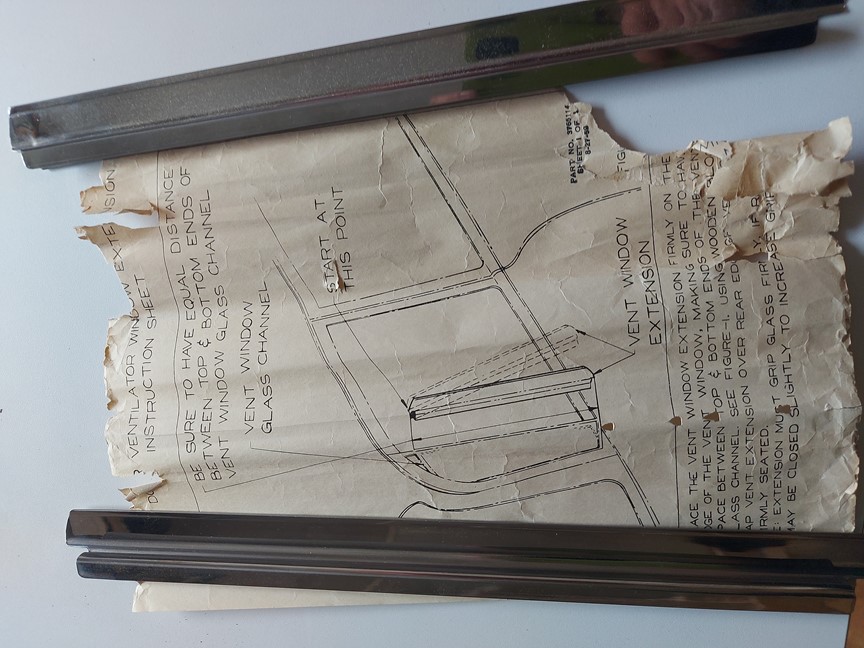 VENTILATOR WINDOW EXTENSION
INSTRUCTION SHEET
BE SURE TO HAVE EQUAL DISTANCE
BETWEEN TOP & BOTTOM ENDS OF
VENT WINDOW GLASS CHANNEL
VENT WINDOW
GLASS CHANNEL
START AT
THIS POINT
VENT WINDOW
EXTENSION
PART NO.
SHEET 1 OF 1
FIG
ACE THE VENT WINDOW EXTENSION FIRMLY ON THE
DGE OF THE VENT WINDOW, MAKING SURE TO HAV
PACE BETWEEN TOP & BOTTOM ENDS OF THE VENT
LASS CHANNEL. SEE FIGURE-1. USING WOODEN BLO
AP VENT EXTENSION OVER REAR ED
IRMLY SEATED.
E: EXTENSION MUST GRIP GLASS FIRMLY, IF
MAY BE CLOSED SLIGHTLY TO INCREASE GRIP